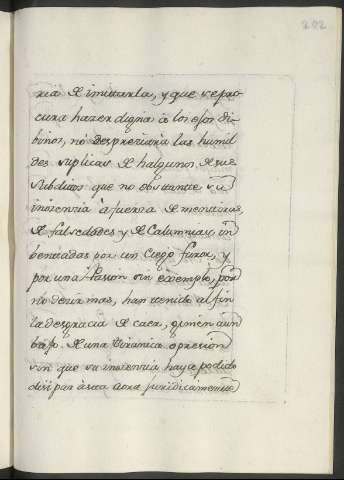 202
ria de imittarla, y que se pro
cura hazer digna â los ojos di
binos, nó despreziaria las humil
des suplicas de halgunos de sus
Subditos que no obstante su
inosenzia â fuerza de mentiras,
de falsedades y de Calumnias, in
bentadas por un ciego furor, y
por una Pasion sin exemplo, por
no dezir mas, han tenido al fin
la desgracia de caer, gimen aun
baxo de una tiranica opresion
sin que su inosenzia haya podido
disipar â esta aora juridicamente